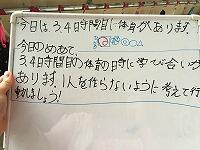 今日は、3,4時間目に体育があります。
今日のめあて、
3,4時間目の体育の日時に学び合いが
あります。1人を作らないように考えて行
動しましょう!